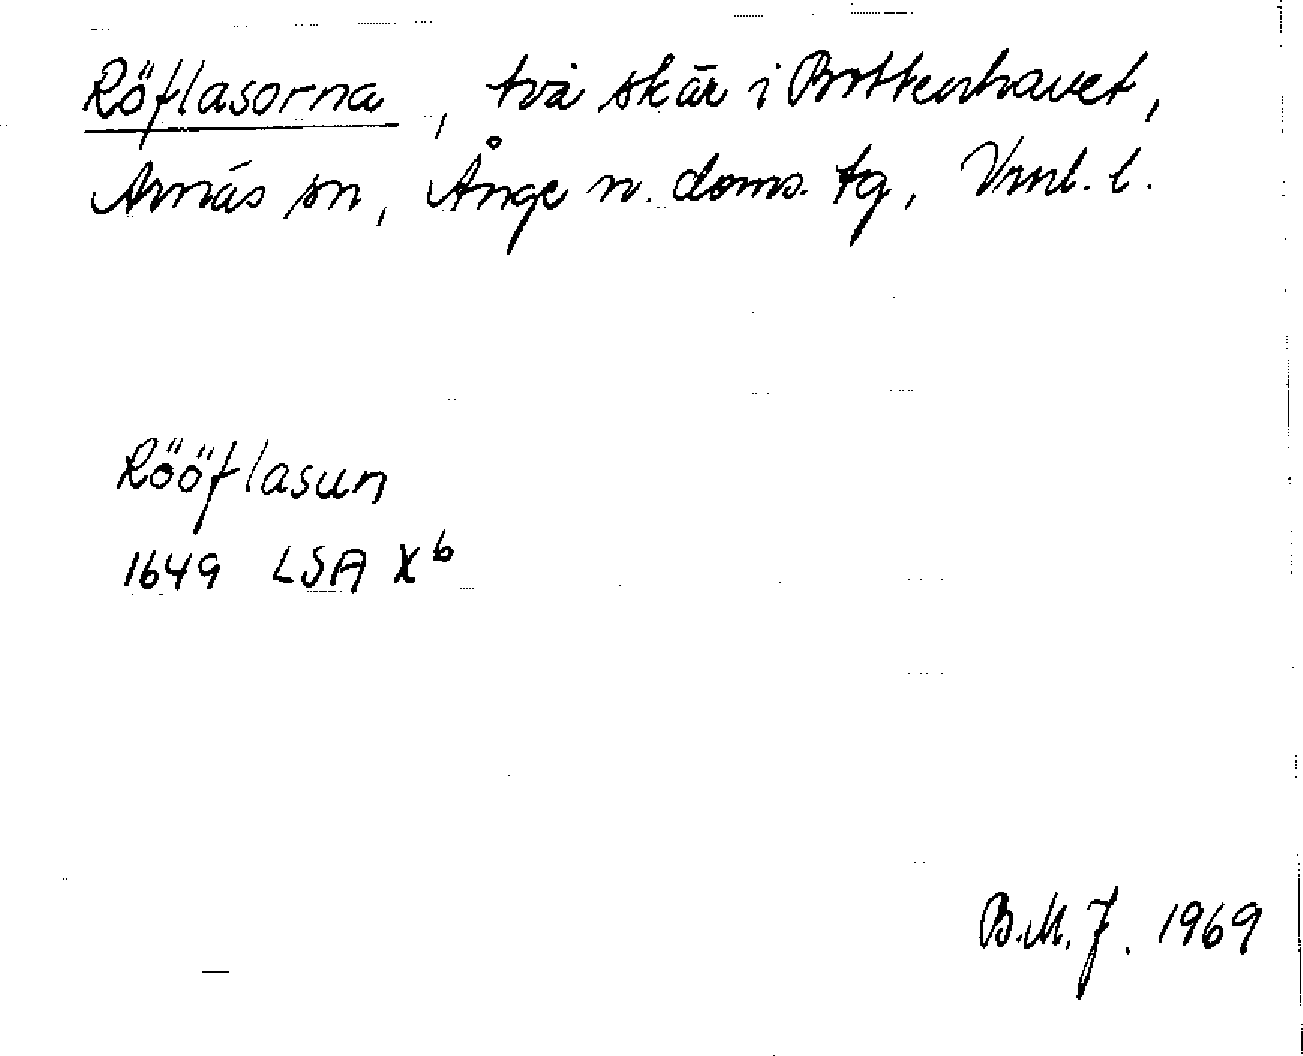 Röflasorna, två skär i Bottenhavet,
Arnäs sn, Ånge n. doms. tg, Vnl. l.
Rööflasun
1649 LSA X b
B.M.J. 1969